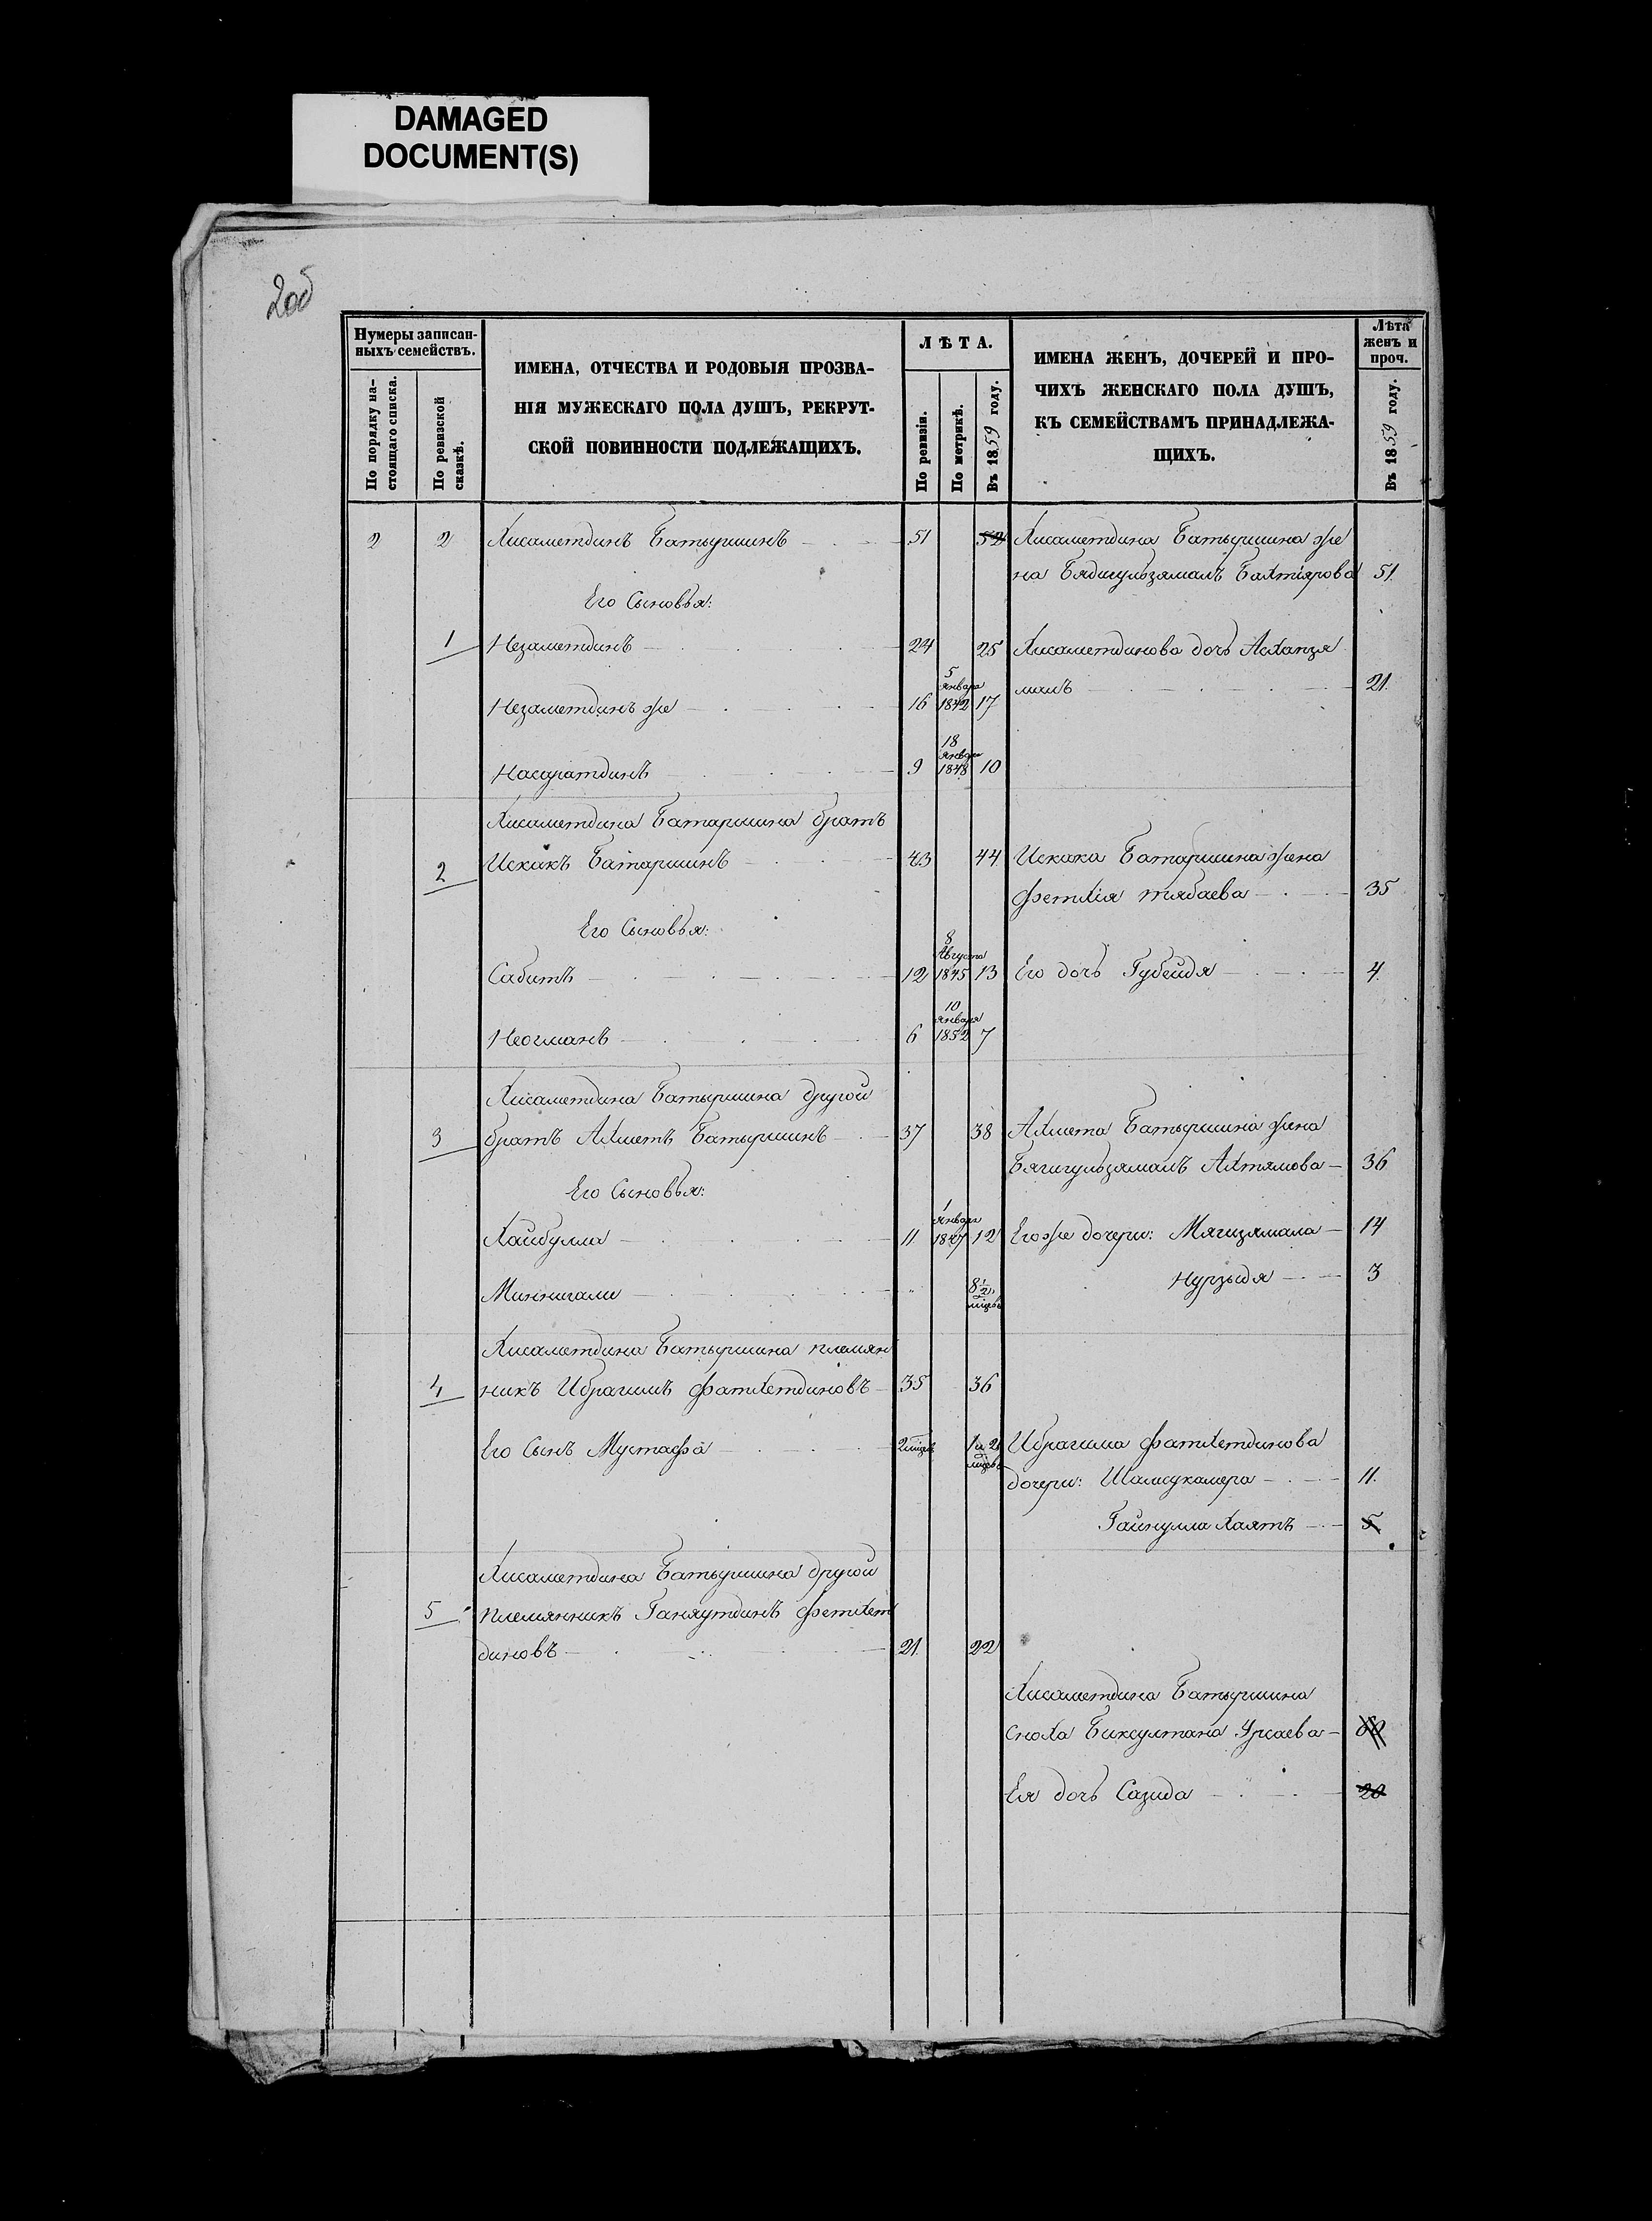 DAMAGED
DOCUMENT(S)
2об
Нумеры записан-
ныхъ семействъ.
По порядку на-
стоящаго списка.
По ревизской
сказкѣ.
ИМЕНА, ОТЧЕСТВА И РОДОВЫЯ ПРОЗВА-
НІЯ МУЖЕСКАГО ПОЛА ДУШЪ, РЕКРУТ-
СКОЙ ПОВИННОСТИ ПОДЛЕЖАЩИХЪ.
ЛѢТА.
По ревизіи.
По метрикѣ.
Въ 1859 году.
ИМЕНА ЖЕНЪ, ДОЧЕРЕЙ И ПРО-
ЧИХЪ ЖЕНСКАГО ПОЛА ДУШЪ,
КЪ СЕМЕЙСТВАМЪ ПРИНАДЛЕЖА-
ЩИХЪ.
Лѣта
женъ и
проч.
Въ 1859 году.
2 2 Хисаметдинъ Батыршинъ 51 52 Хисаметдина Батыршина же
на Бядигульзямалъ Бахтіярова 51
Его Сыновья:
1 Незаметдинъ 24 25 Хисаметдинова дочь Асхапзя
малъ 21.
Незаметдинъ же 16 5 января 1842 17
Насаратдинъ 9 18 января 1848 10
Хисаметдина Батаршина братъ
2 Искакъ Батаршинъ 43 44 Искака Батаршина жена
Фетхія Тябаева 35
Его Сыновья:
Сабитъ 12 8 Августа 1845 13 Его дочь Губейдя 4
Ногманъ 6 10 января 1852 7
Хисаметдина Батыршина другой
3 братъ Ахметъ Батыршинъ 37 38 Ахмета Батыршина жена
Бягигульзямалъ Ахтямова 36
Его Сыновья:
Хайбулла 11 1 января 1847 12 Его же дочери: Мягизямала 14
Миннигали 8½ мцевъ Нурзыдя 3
Хисаметдина Батыршина племян
4 никъ Ибрагимъ Фатхетдиновъ 35 36
Его Сынъ Мустафа 2 мцев 1 и 2 мцевъ Ибрагима Фатхетдинова
дочери: Шамсукамера 11.
Гайнулла Хаятъ 5
Хисаметдина Батыршина другой
5 племянникъ Ганяутдинъ Фетхет
диновъ 21. 22
Хисаметдина Батыршина
сноха Биксултана Урсаева 60
Ея дочь Сагида 20